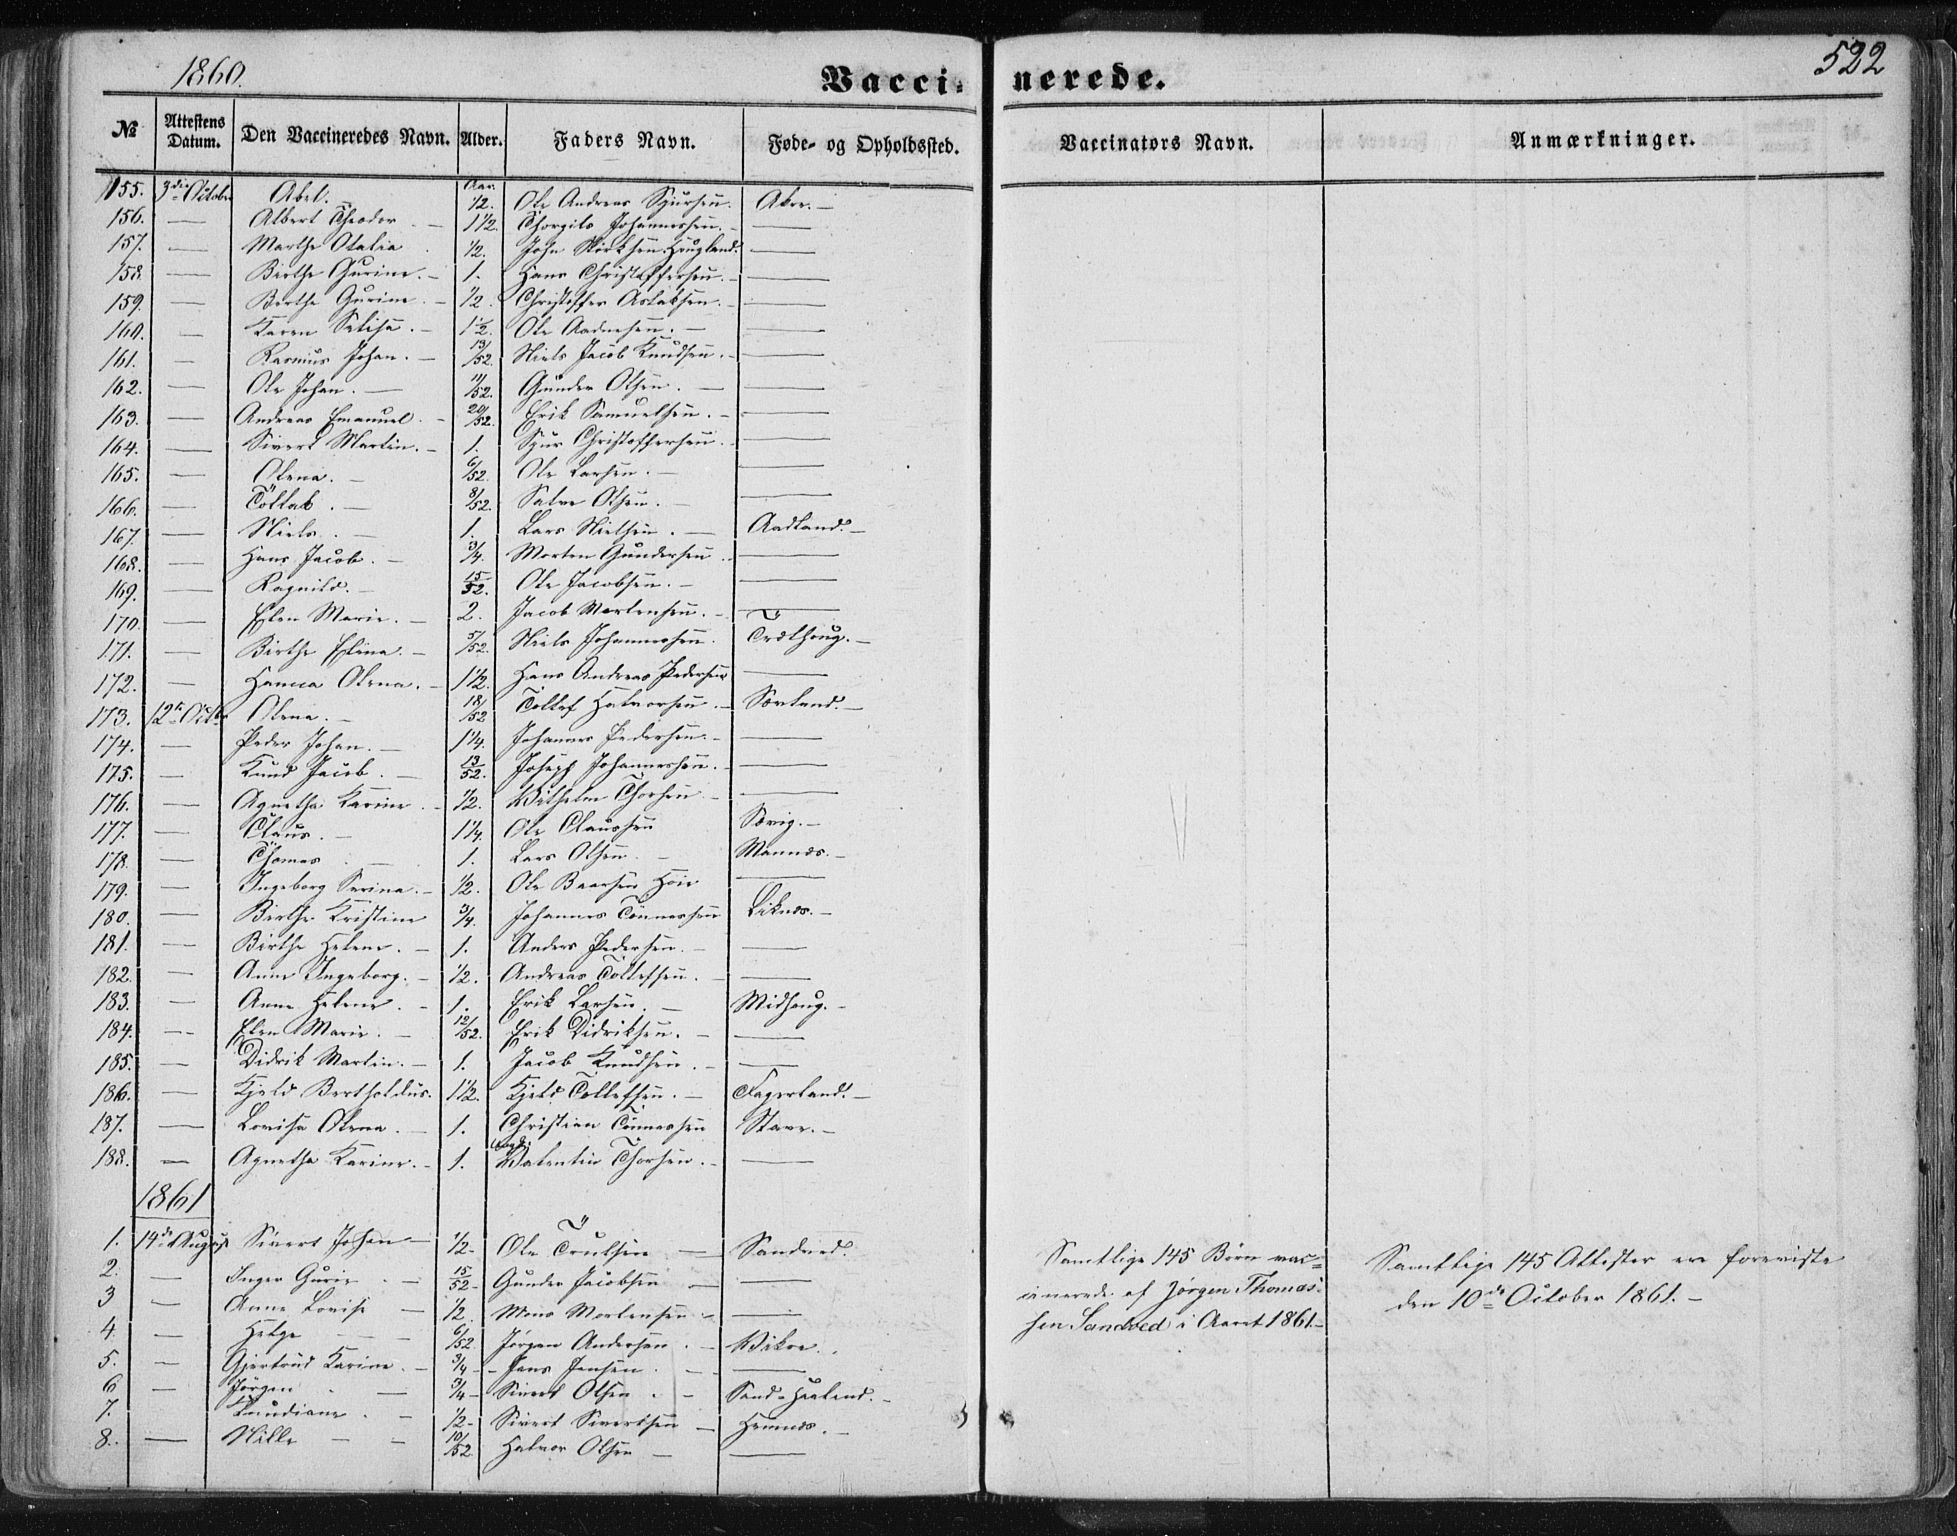 1860.
Vacci-nerede.
522
№ Attestens Datum. Den Vaccineredes Navn. Alder. Faders Navn. Føde- og Opholdssted. Vaccinators Navn. Anmærkninger.
155. 3die Octobr Abel. Aar. 1/2. Ole Andreas Sjursen. Akre. —
156. — Albert Theodor. 1 1/2. Thorgils Johannessen. —
157. — Marthe Otalia 1/2. John Hougland. —
158. — Birthe Gurine. — 1. Hans Christoffersen. —
159. — Berthe Gurine. — 1/2. Christoffer Aslaksen. —
160. — Karen Selisa. — 1 1/2. Ole Aadnesen. —
161. — Rasmus Johan. — 13/52. Niels Jacob Knudsen. —
162. — Ole Johan. — 11/52. Gunder Olsen. —
163. — Andreas Emanuel. — 20/52. Erik Samuelsen. —
164. — Sivert Martin. — 1. Sjur Christoffersen. —
165. — Olena. — 6/52. Ole Larsen. —
166. — Tollak. — 8/52. Salve Olsen. —
167. — Niels. — 1. Lars Nielsen. — Aadland. —
168. — Hans Jacob. — 3/4. Morten Gundersen. —
169. — Ragnild. — 15/52. Ole Jacobsen. —
170. — Elen Marie. — 2. Jacob Mortensen. —
171. — Birthe Elina. — 5/52. Niels Johannessen. Trælhoug. —
172. — Hanna Olena. — 1 1/2. Hans Andreas Pedersen —
173. 12te Octbr Olena. — 18/52 Tollef Halvorsen. — Sørland. —
174. — Peder Johan. — 1 1/4. Johannes Pedersen. —
175. — Knud Jacob. — 13/52. Joseph Johannessen. —
176. — Agnetha Karine. — 1/2. Wilhelm Thorsen —
177. — Claus. — 1 1/4. Ole Claussen Sævig. —
178. — Thomas. — 1. Lars Olsen. — Mannæs. —
179. — Ingeborg Serina. — 1/2. Ole Baarsen Høie —
180. — Birthe Kristine 3/4. Johannes Tönnessen Liknæs. —
181. — Birthe Helene. — 1. Anders Pedersen. —
182. — Anne Ingeborg. — 1/2. Andreas Tollefsen. —
183. — Anne Helene. — 1. Erik Larsen. — Midhoug. —
184. — Elen Marie. — 12/52. Erik Didriksen. —
185. — Didrik Martin. — 1. Jacob Knudsen. —
186. — Kjeld Bertholdus. 1 1/2. Kjeld Tollefsen. — Fagerland. —
187. — Lovisa Olena. — 1. Christian Tönnessen Stave. —
188. — Agnetha Karine. — 1. Valentin Thorsen. —
1861
1. 14de August Sivert Johan — 1/2 — Ole Trulsen — Sandved.
2. — Inger Gurie. — 15/52 — Gunder Jacobsen —
3 — Anne Lovise — 1/2. Mons Mortensen —
4. — Helge — 6/52. Jørgen Andersen. — Vikre.
5. — Gjertrud Karine. — 3/4 — Jens Jensen. —
6 — Jørgen — 3/4 — Sivert Olsen. — Sand-Haaland. —
7. — Knudiane. — 1/2 — Sivert Sivertsen — Hemnæs. —
8. — Nille — 10/52 Halvor Olsen —
Samtlige 145 Børn vac-
cinerede af Jørgen Thomas-
sen Sandved i Aaret 1861 —
Samtlige 145 Attester ere foreviste
den 10de October 1861. —